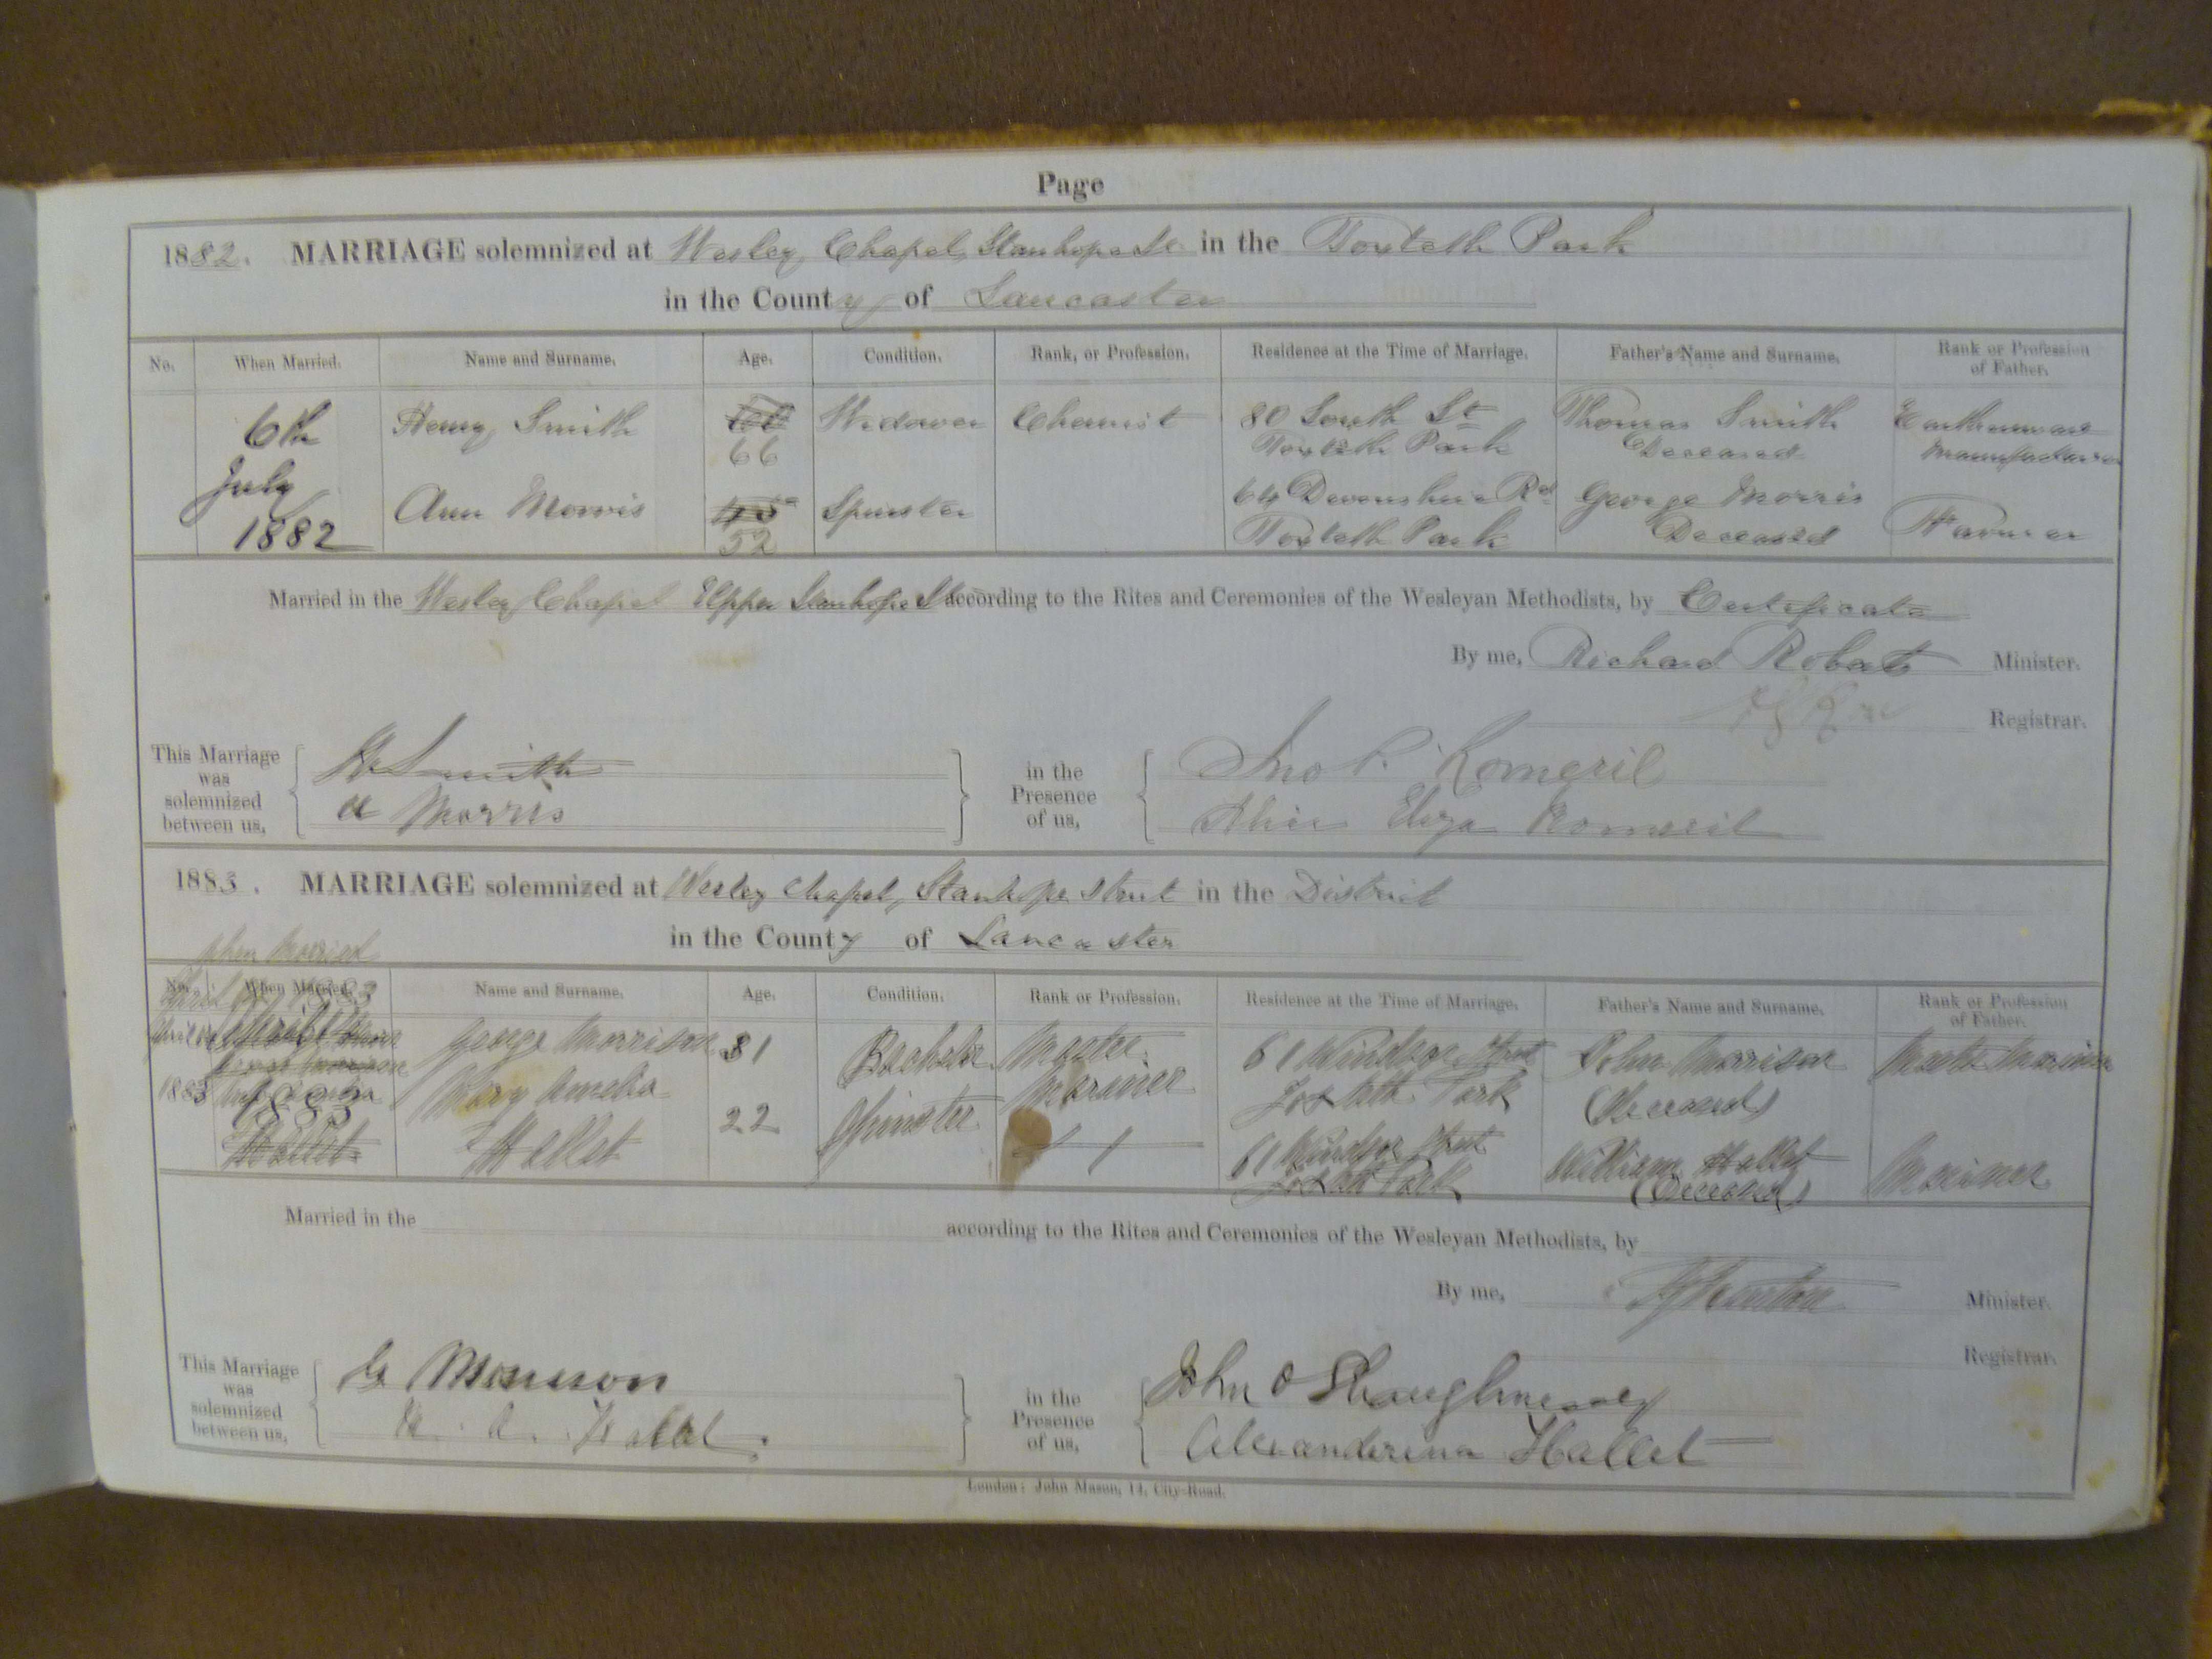 Page
1882. MARRIAGE solemnized at Wesley Chapel, Stanhope St in the Toxteth Park
in the County of Lancaster
No. When Married. Name and Surname. Age. Condition. Rank, or Profession. Residence at the Time of Marriage. Father's Name and Surname. Rank or Profession of Father.
6th July 1882
Henry Smith 66 Widower Chemist 80 South St Toxteth Park Thomas Smith Deceased Earthenware Manufacturer
Ann Morris 45 52 Spinster 64 Devonshire Rd Toxteth Park George Morris Deceased Farmer
Married in the Wesley Chapel Upper Stanhope St according to the Rites and Ceremonies of the Wesleyan Methodists, by Certificate
By me, Richard Roberts Minister.
Registrar.
This Marriage was solemnized between us,
H Smith
A Morris
in the Presence of us,
Jno P. Romeril
Alice Eliza Romeril
1883. MARRIAGE solemnized at Wesley Chapel, Stanhope Street in the District
in the County of Lancaster
When Married
No. When Married. Name and Surname. Age. Condition. Rank or Profession. Residence at the Time of Marriage. Father's Name and Surname. Rank or Profession of Father.
April 1883
1883
1883
Hallet
George Morrison 31 Bachelor Master Mariner 61 Windsor Street Toxteth Park John Morrison (Deceased) Master Mariner
Mary Amelia Hallet 22 Spinster 61 Windsor Street Toxteth Park William Hallet (Deceased) Mariner
Married in the according to the Rites and Ceremonies of the Wesleyan Methodists, by
By me, Minister.
Registrar.
This Marriage was solemnized between us,
G Morrison
M. A. Hallet
in the Presence of us,
John O Shaughnessy
Alexanderina Hallet
London: John Mason, 14, City-Road.